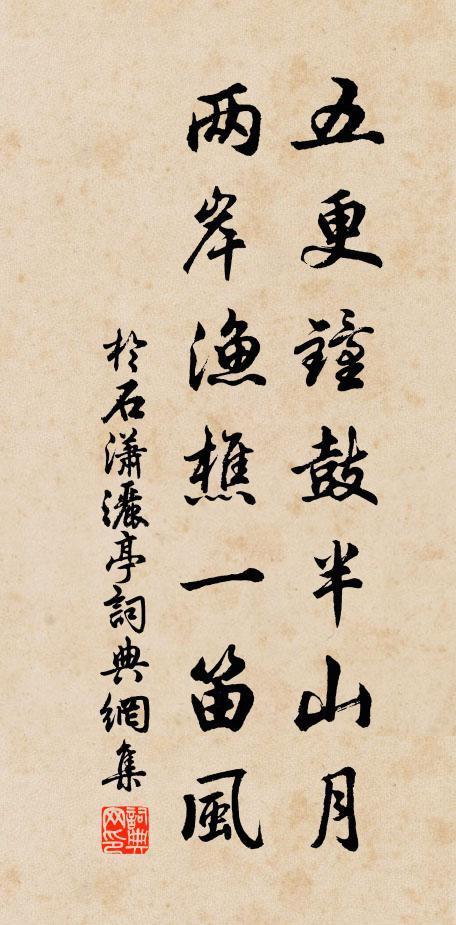 五更鐘鼓半山月
两岸漁樵一笛風
於石瀟灑亭詞典網集
詞典
网印